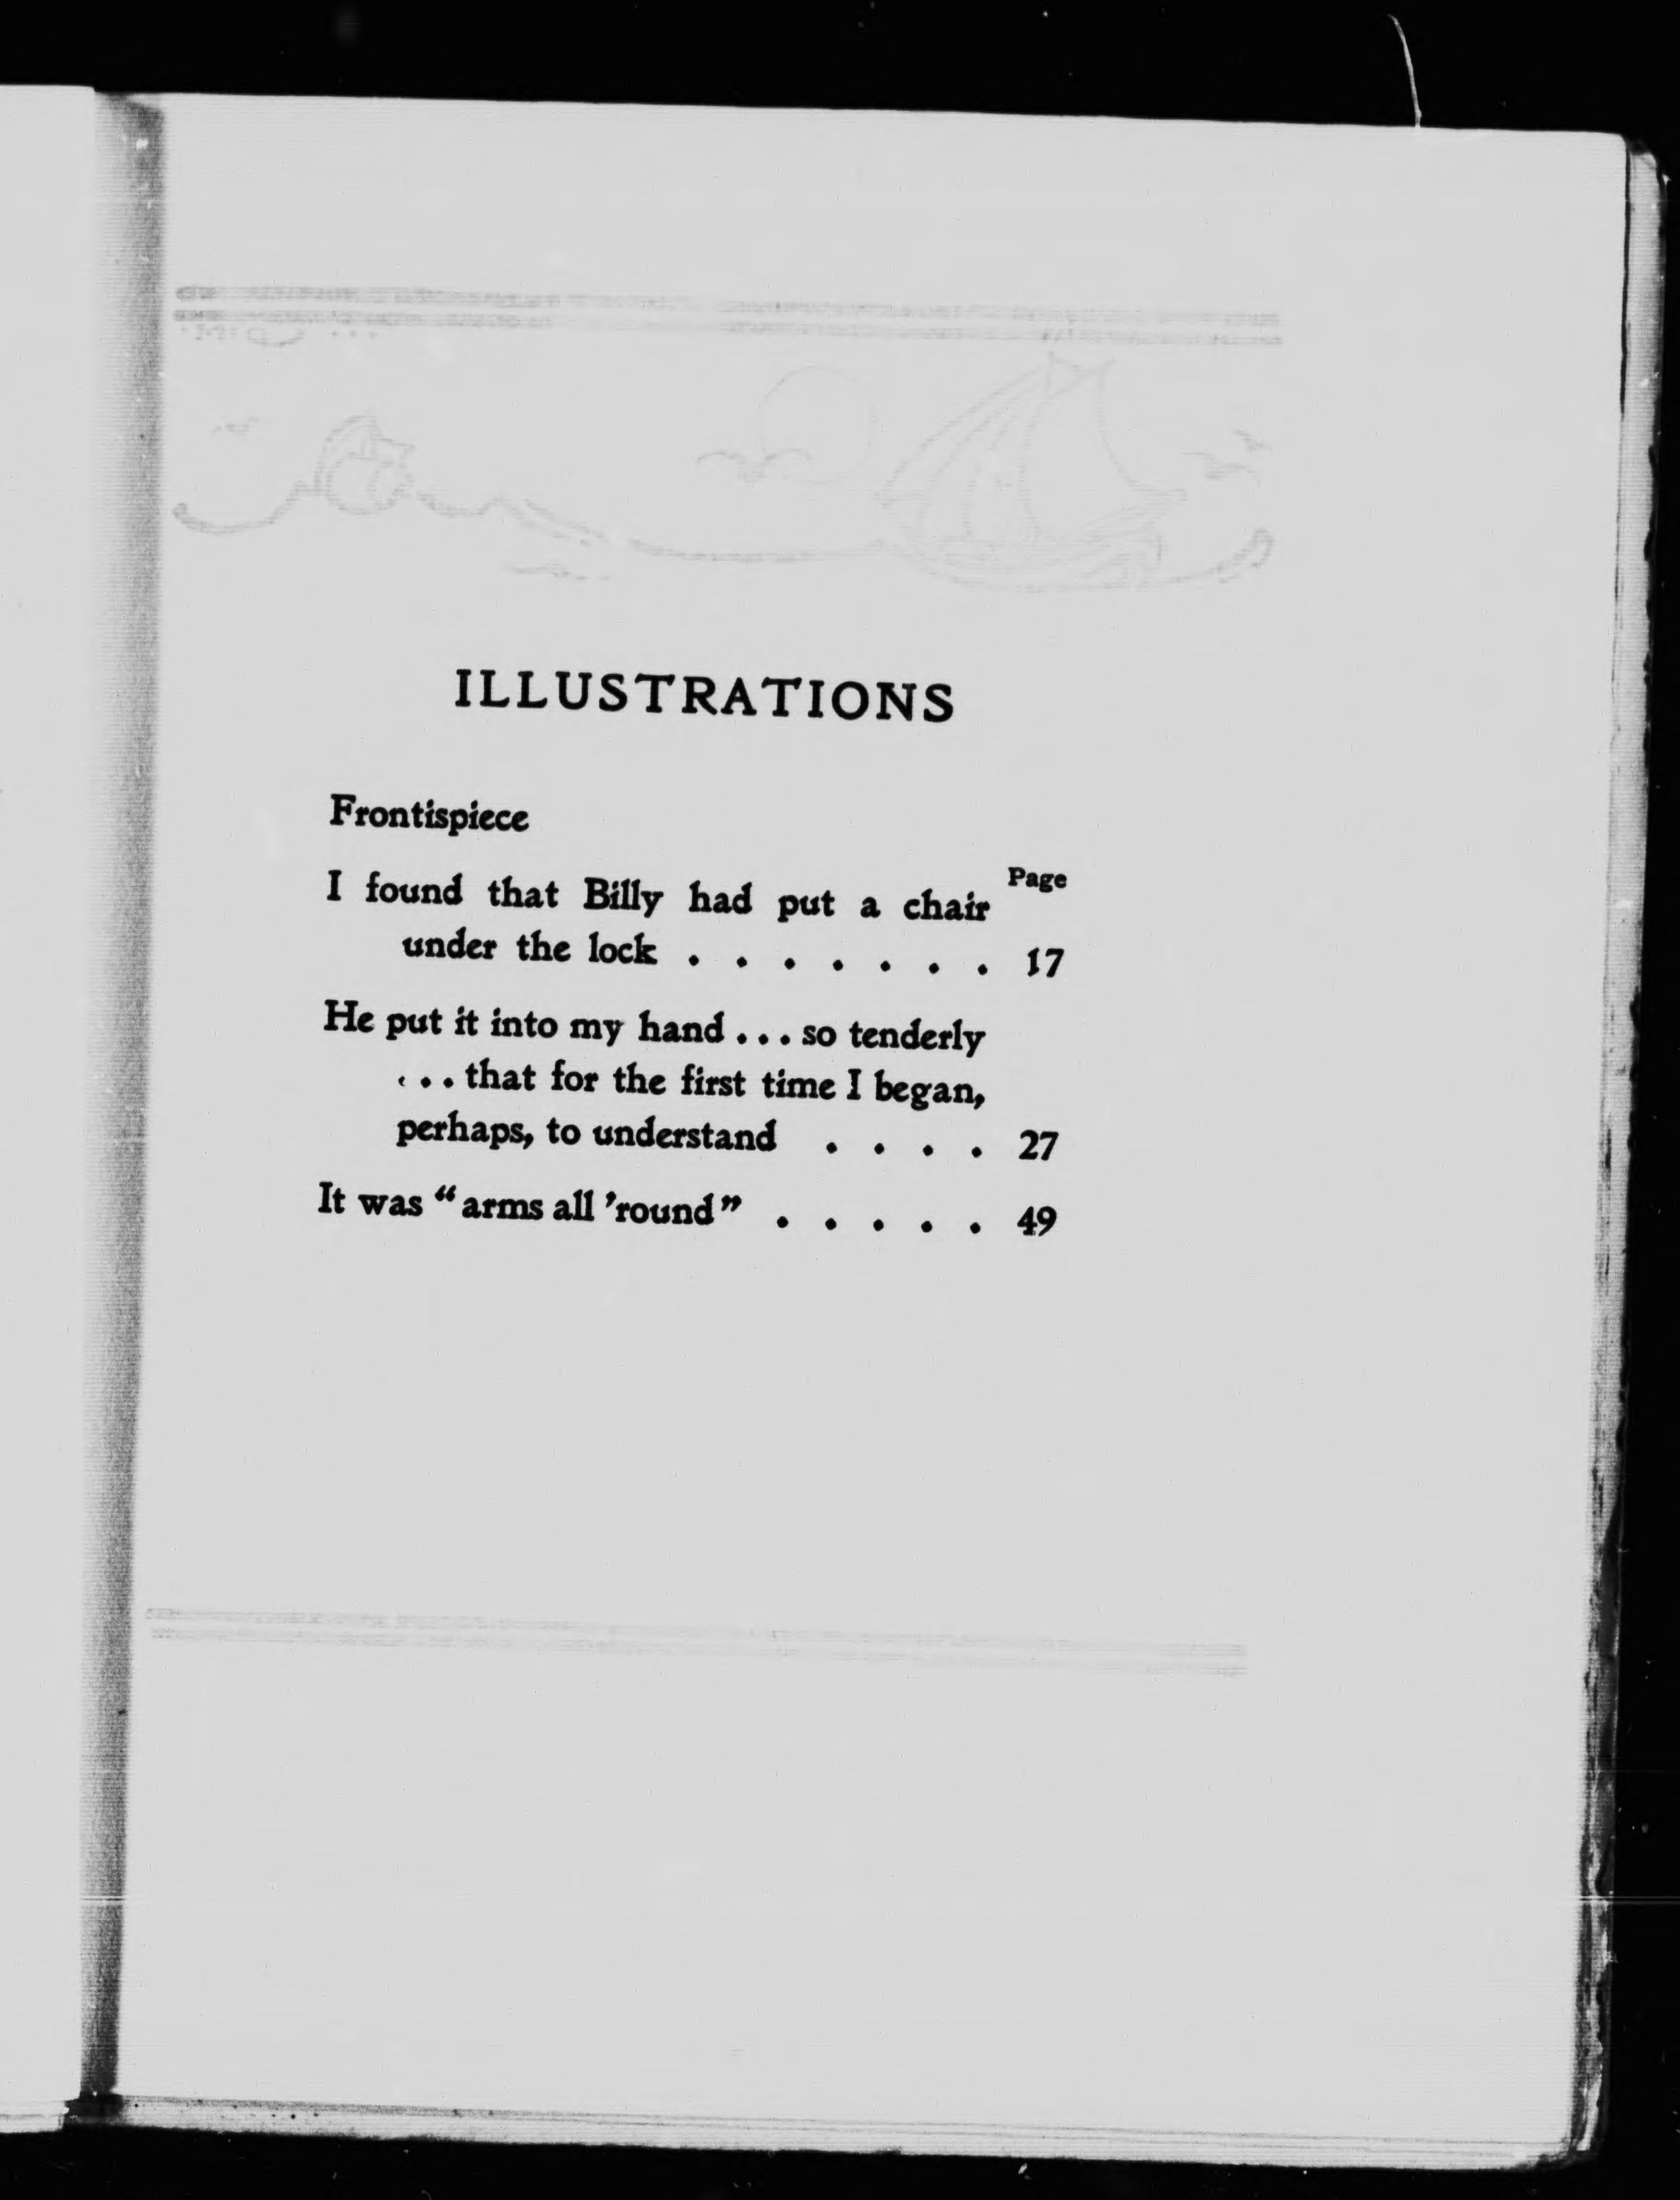 ILLUSTRATIONS
Frontispiece
Page
I found that Billy had put a chair
under the lock . . . . . . . 17
He put it into my hand ... so tenderly
... that for the first time I began,
perhaps, to understand . . . . 27
It was "arms all 'round" . . . . . 49